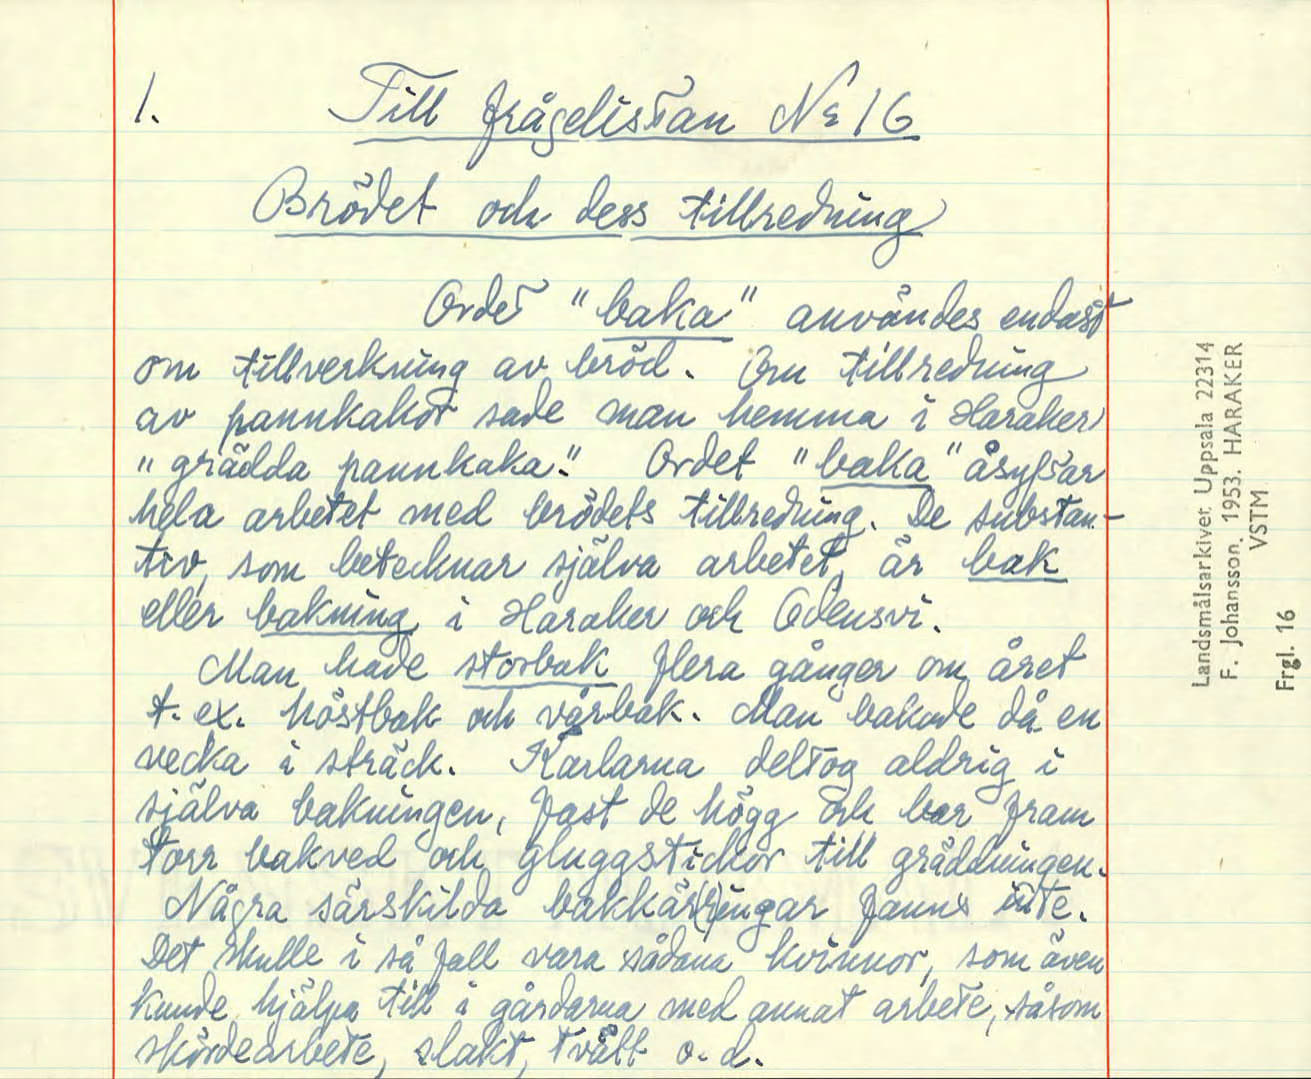 1. Till frågelistan No 16
Brödet och dess tillredning
Ordet "baka" användes endast
om tillverkning av bröd. Om tillredning
av pannkakor sade man hemma i Haraker
"grädda pannkaka." Ordet "baka" åsyftar
hela arbetet med brödets tillredning. De substan-
tiv, som betecknar själva arbetet, är bak
eller bakning i Haraker och Odensvi.
Man hade storbak flera gånger om året
t. ex. höstbak och vårbak. Man bakade då en
vecka i sträck. Karlarna deltog aldrig i
själva bakningen, fast de högg och bar fram
torr bakved och gluggstickor till gräddningen.
Några särskilda bakkär(r)ingar fanns inte.
Det skulle i så fall vara sådana kvinnor, som även
kunde hjälpa till i gårdarna med annat arbete, såsom
skördearbete, slakt, tvätt o. d.
Landsmålsarkivet Uppsala 22314
F. Johansson. 1953. HARAKER
VSTM
Frgl. 16